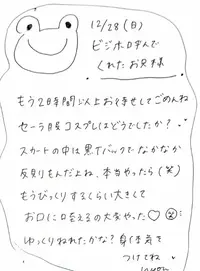 12/28(日)
ビジホの呼んで
くれたお兄様
もう2日時間以上お待せしてごめんね
セーラー服コスプレはどうでしたか?
スカートの中は黒Tバックでなかなか
反りもんだよね、本当やったら(笑)
もうびっくりするくらい大きくて
お口に咥えるの大変やった♡
ゆっくりねれたかな?身体を
つけてね